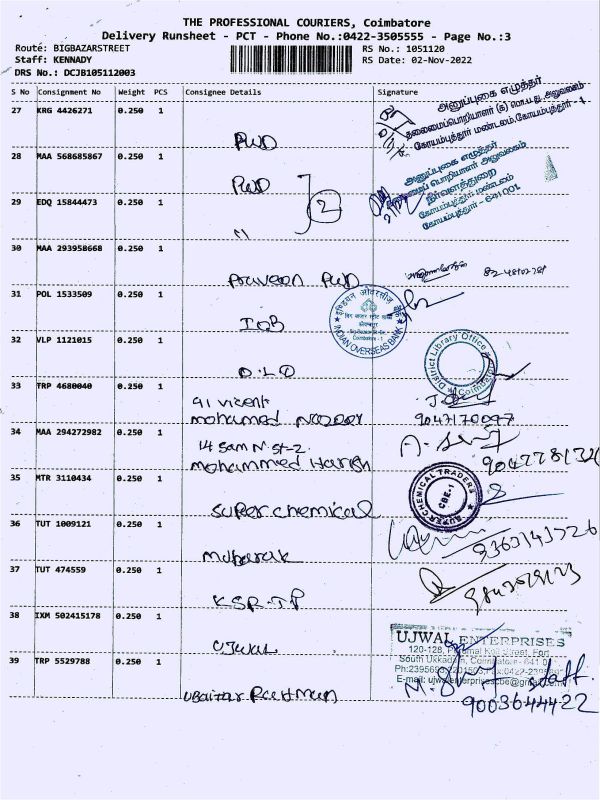 THE PROFESSIONAL COURIERS, Coimbatore
Delivery Runsheet - PCT - Phone No.:0422-3505555 - Page No.:3
Route: BIGBAZARSTREET
RS No.: 1051120
Staff: KENNADY
RS Date: 02-Nov-2022
DRS No.: DCJB105112003
S No Consignment No Weight PCS Consignee Details Signature
27 KRG 4426271 0.250 1
PWD
அனுப்புகை எழுத்தர்
28 MAA 568685867 0.250 1
PWD
அனுப்புகை எழுத்தர்
நீர்வளத்துறை
கோயம்புத்தூர் மண்டலம்
கோயம்புத்தூர் - 641 001
29 EDQ 15844473 0.250 1
2
"
30 MAA 293958668 0.250 1
Praveen PWD
31 POL 1533509 0.250 1
IOB
INDIAN OVERSEAS BANK
Coimbatore - 1
32 VLP 1121015 0.250 1
D.L.O
District Library Office
Coimbatore
33 TRP 4680040 0.250 1
91 Vicent
mohamed Nazeer
9047170097
34 MAA 294272982 0.250 1
14 Sam N. St-2
mohammed Harish
35 MTR 3110434 0.250 1
super chemical
SUPER CHEMICAL TRADERS
CBE-1
36 TUT 1009121 0.250 1
mubarak
37 TUT 474559 0.250 1
KSR-TP
38 IXM 502415178 0.250 1
UJwal
UJWAL ENTERPRISES
120-128, Perumal Koil Street, Fort
South Ukkadam, Coimbatore - 641 001
39 TRP 5529788 0.250 1
Ubaitar Rahman
staff.
9003644422